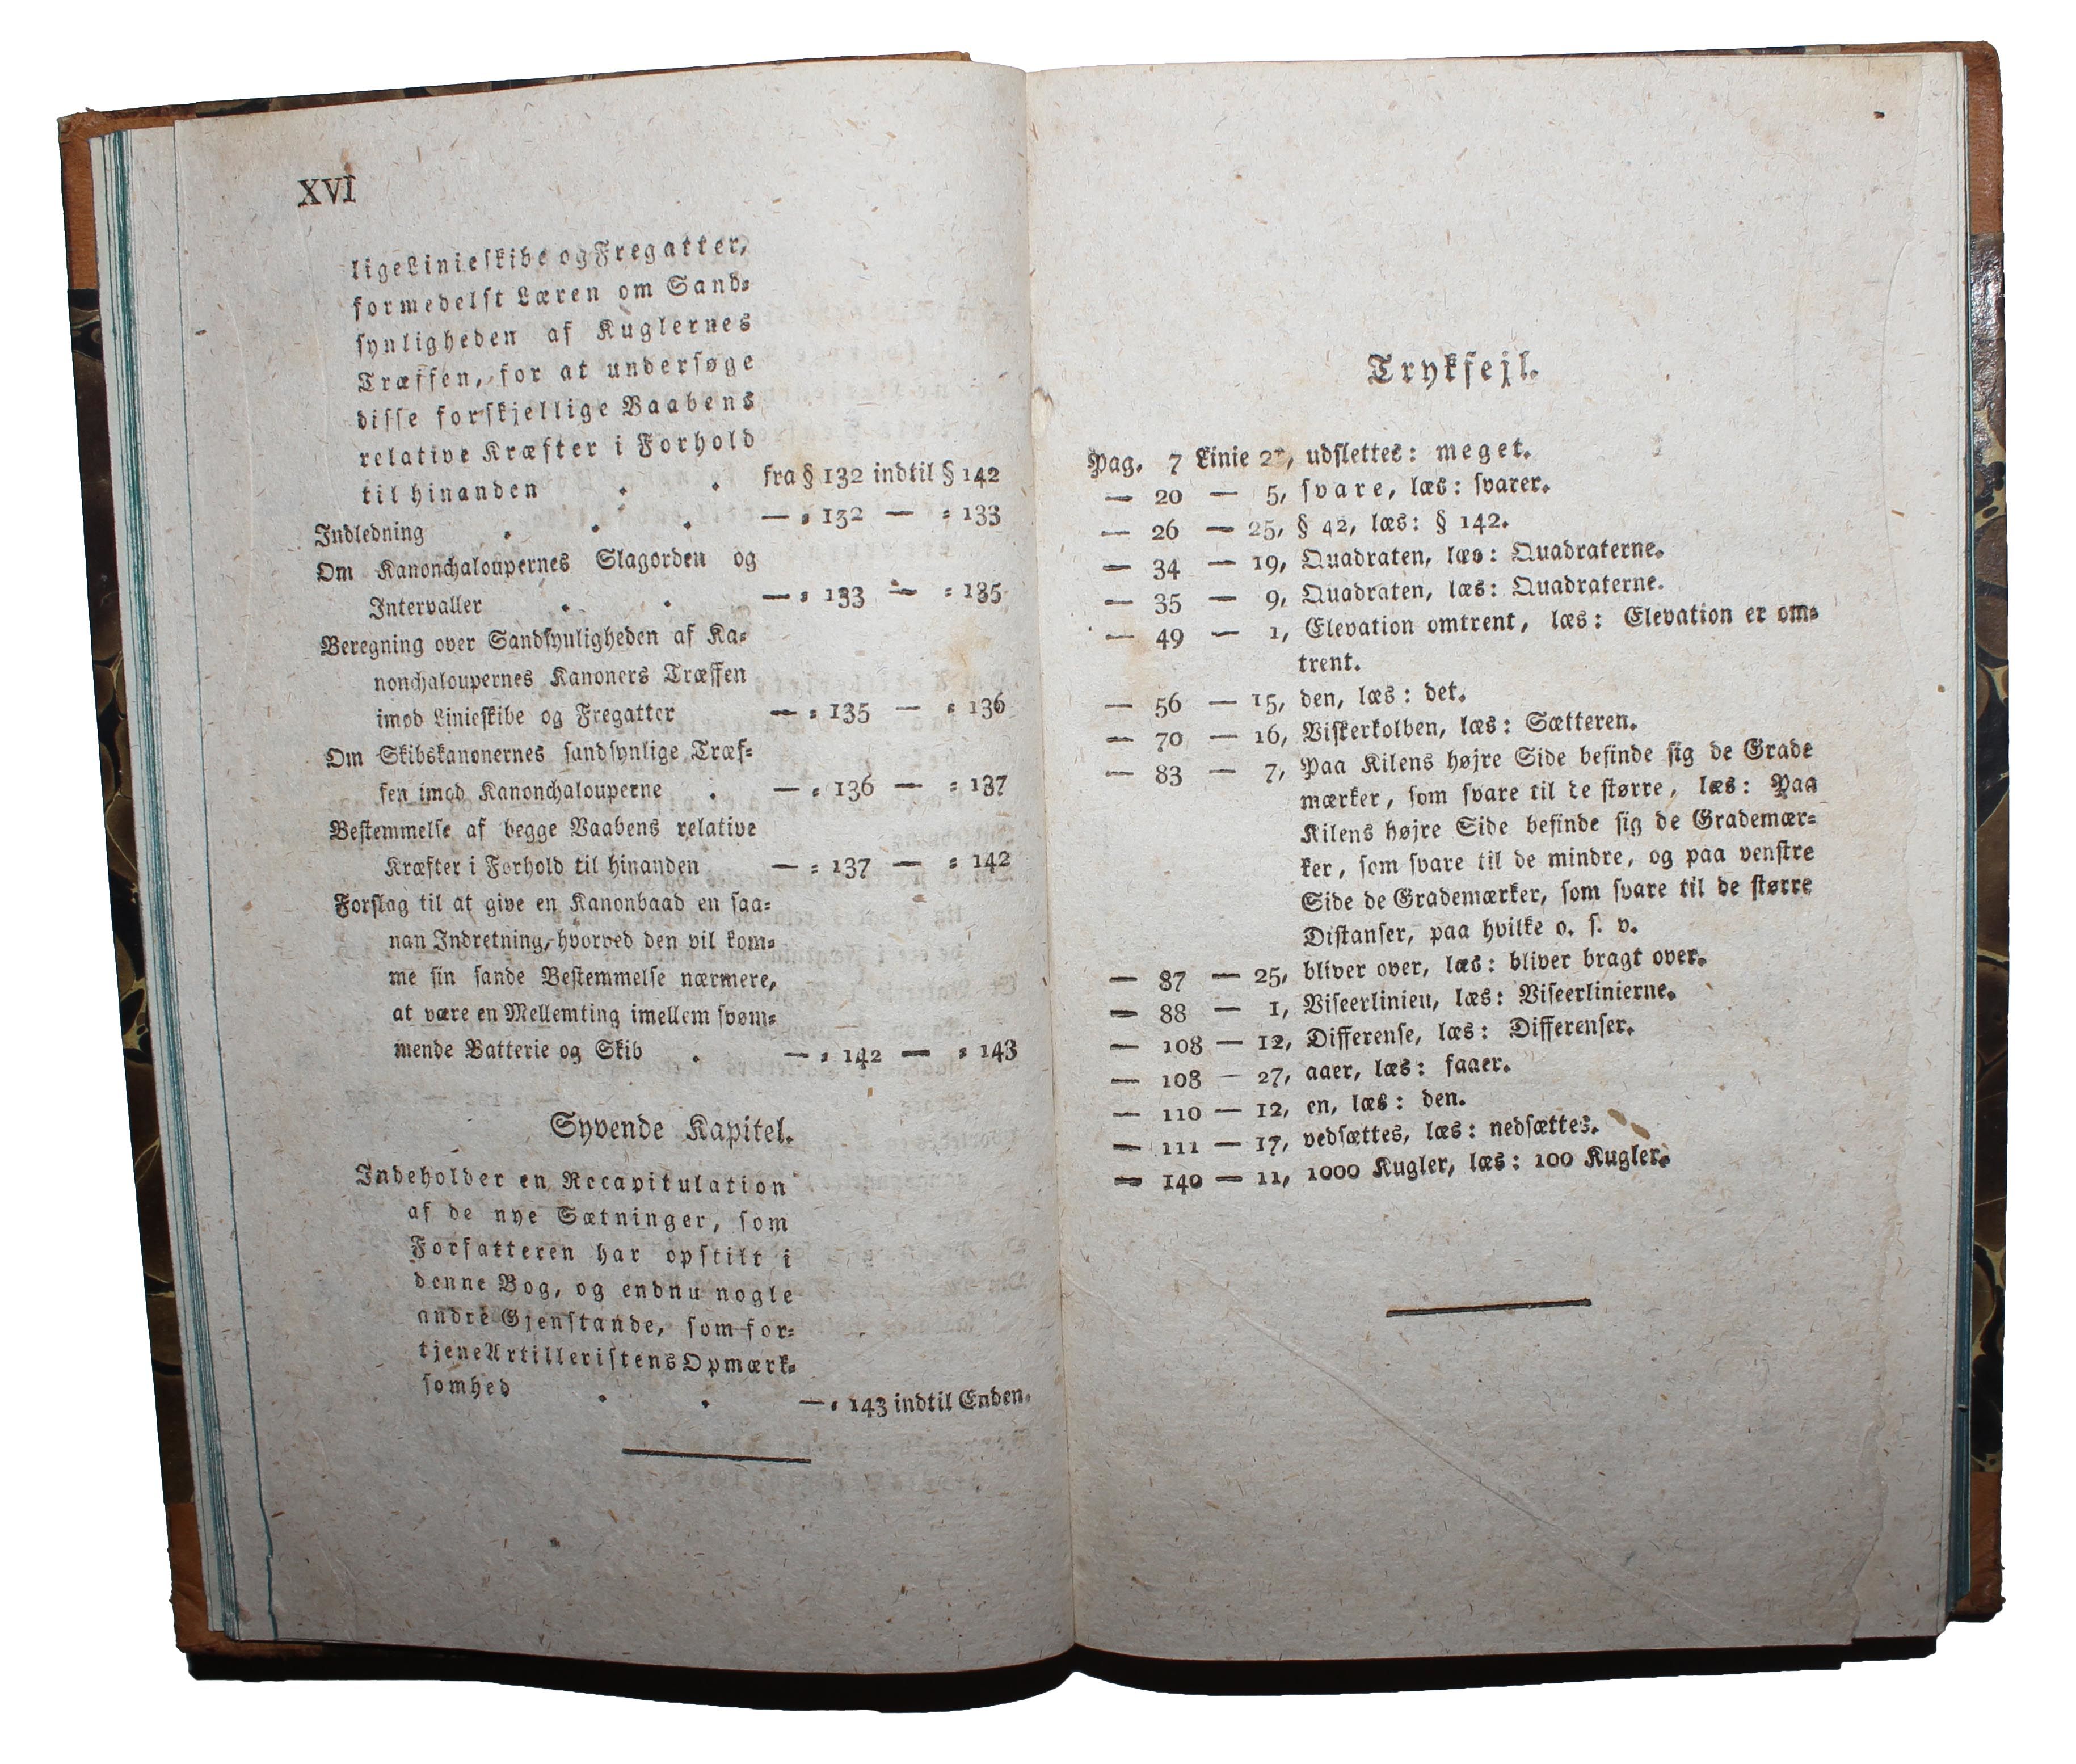 XVI
lige Linieskibe og Fregatter,
formedelst Læren om Sand=
synligheden af Kuglernes
Træffen, for at undersøge
disse forskjellige Vaabens
relative Kræfter i Forhold
til hinanden . . fra § 132 indtil § 142
Indledning . . . — = 132 — = 133
Om Kanonchaloupernes Slagorden og
Intervaller . . — = 133 — = 135
Beregning over Sandsynligheden af Ka=
nonchaloupernes Kanoners Træffen
imod Linieskibe og Fregatter — = 135 — = 136
Om Skibskanonernes sandsynlige Træf=
fen imod Kanonchalouperne . — = 136 — = 137
Bestemmelse af begge Vaabens relative
Kræfter i Forhold til hinanden — = 137 — = 142
Forslag til at give en Kanonbaad en saa=
nan Indretning, hvorved den vil kom=
me sin sande Bestemmelse nærmere,
at være en Mellemting imellem svøm=
mende Batterie og Skib . — = 142 — = 143
Syvende Kapitel.
Indeholder en Recapitulation
af de nye Sætninger, som
Forfatteren har opstilt i
denne Bog, og endnu nogle
andre Gjenstande, som for=
tjene Artilleristens Opmærk=
somhed . . — = 143 indtil Enden.
Trykfejl.
Pag. 7 Linie udslettes: meget.
— 20 — 5, svare, læs: svarer.
— 26 — 25, § 42, læs: § 142.
— 34 — 19, Quadraten, læs: Quadraterne.
— 35 — 9, Quadraten, læs: Quadraterne.
— 49 — 1, Elevation omtrent, læs: Elevation er om=
trent.
— 56 — 15, den, læs: det.
— 70 — 16, Viskerkolben, læs: Sætteren.
— 83 — 7, Paa Kilens højre Side befinde sig de Grade
mærker, som svare til de større, læs: Paa
Kilens højre Side befinde sig de Grademær=
ker, som svare til de mindre, og paa venstre
Side de Grademærker, som svare til de større
Distanser, paa hvilke o. s. v.
— 87 — 25, bliver over, læs: bliver bragt over.
— 88 — 1, Viseerlinien, læs: Viseerlinierne.
— 108 — 12, Differense, læs: Differenser.
— 108 — 27, aaer, læs: faaer.
— 110 — 12, en, læs: den.
— 111 — 17, vedsættes, læs: nedsættes.
— 140 — 11, 1000 Kugler, læs: 100 Kugler.